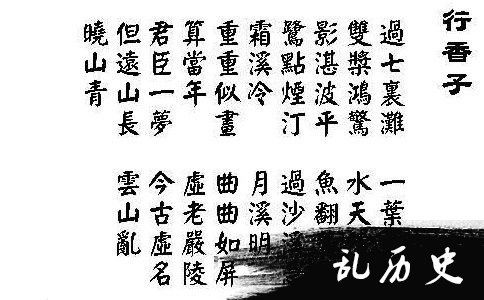 行香子
過七裏灘 一葉
雙槳鴻驚 水天
影湛波平 魚翻
鷺點煙汀 過沙
霜溪冷 月溪明
重重似畫 曲曲如屏
算當年 虛老嚴陵
君臣一夢 今古虛名
但遠山長 雲山亂
曉山青
乱历史